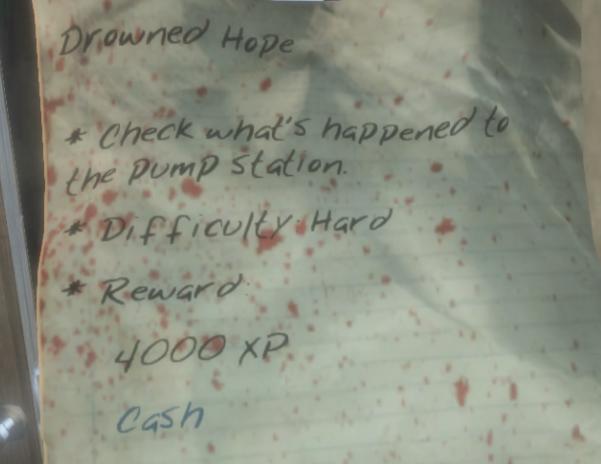 Drowned Hope
* Check what's happened to
the pump station.
* Difficulty: Hard
* Reward
4000 XP
Cash